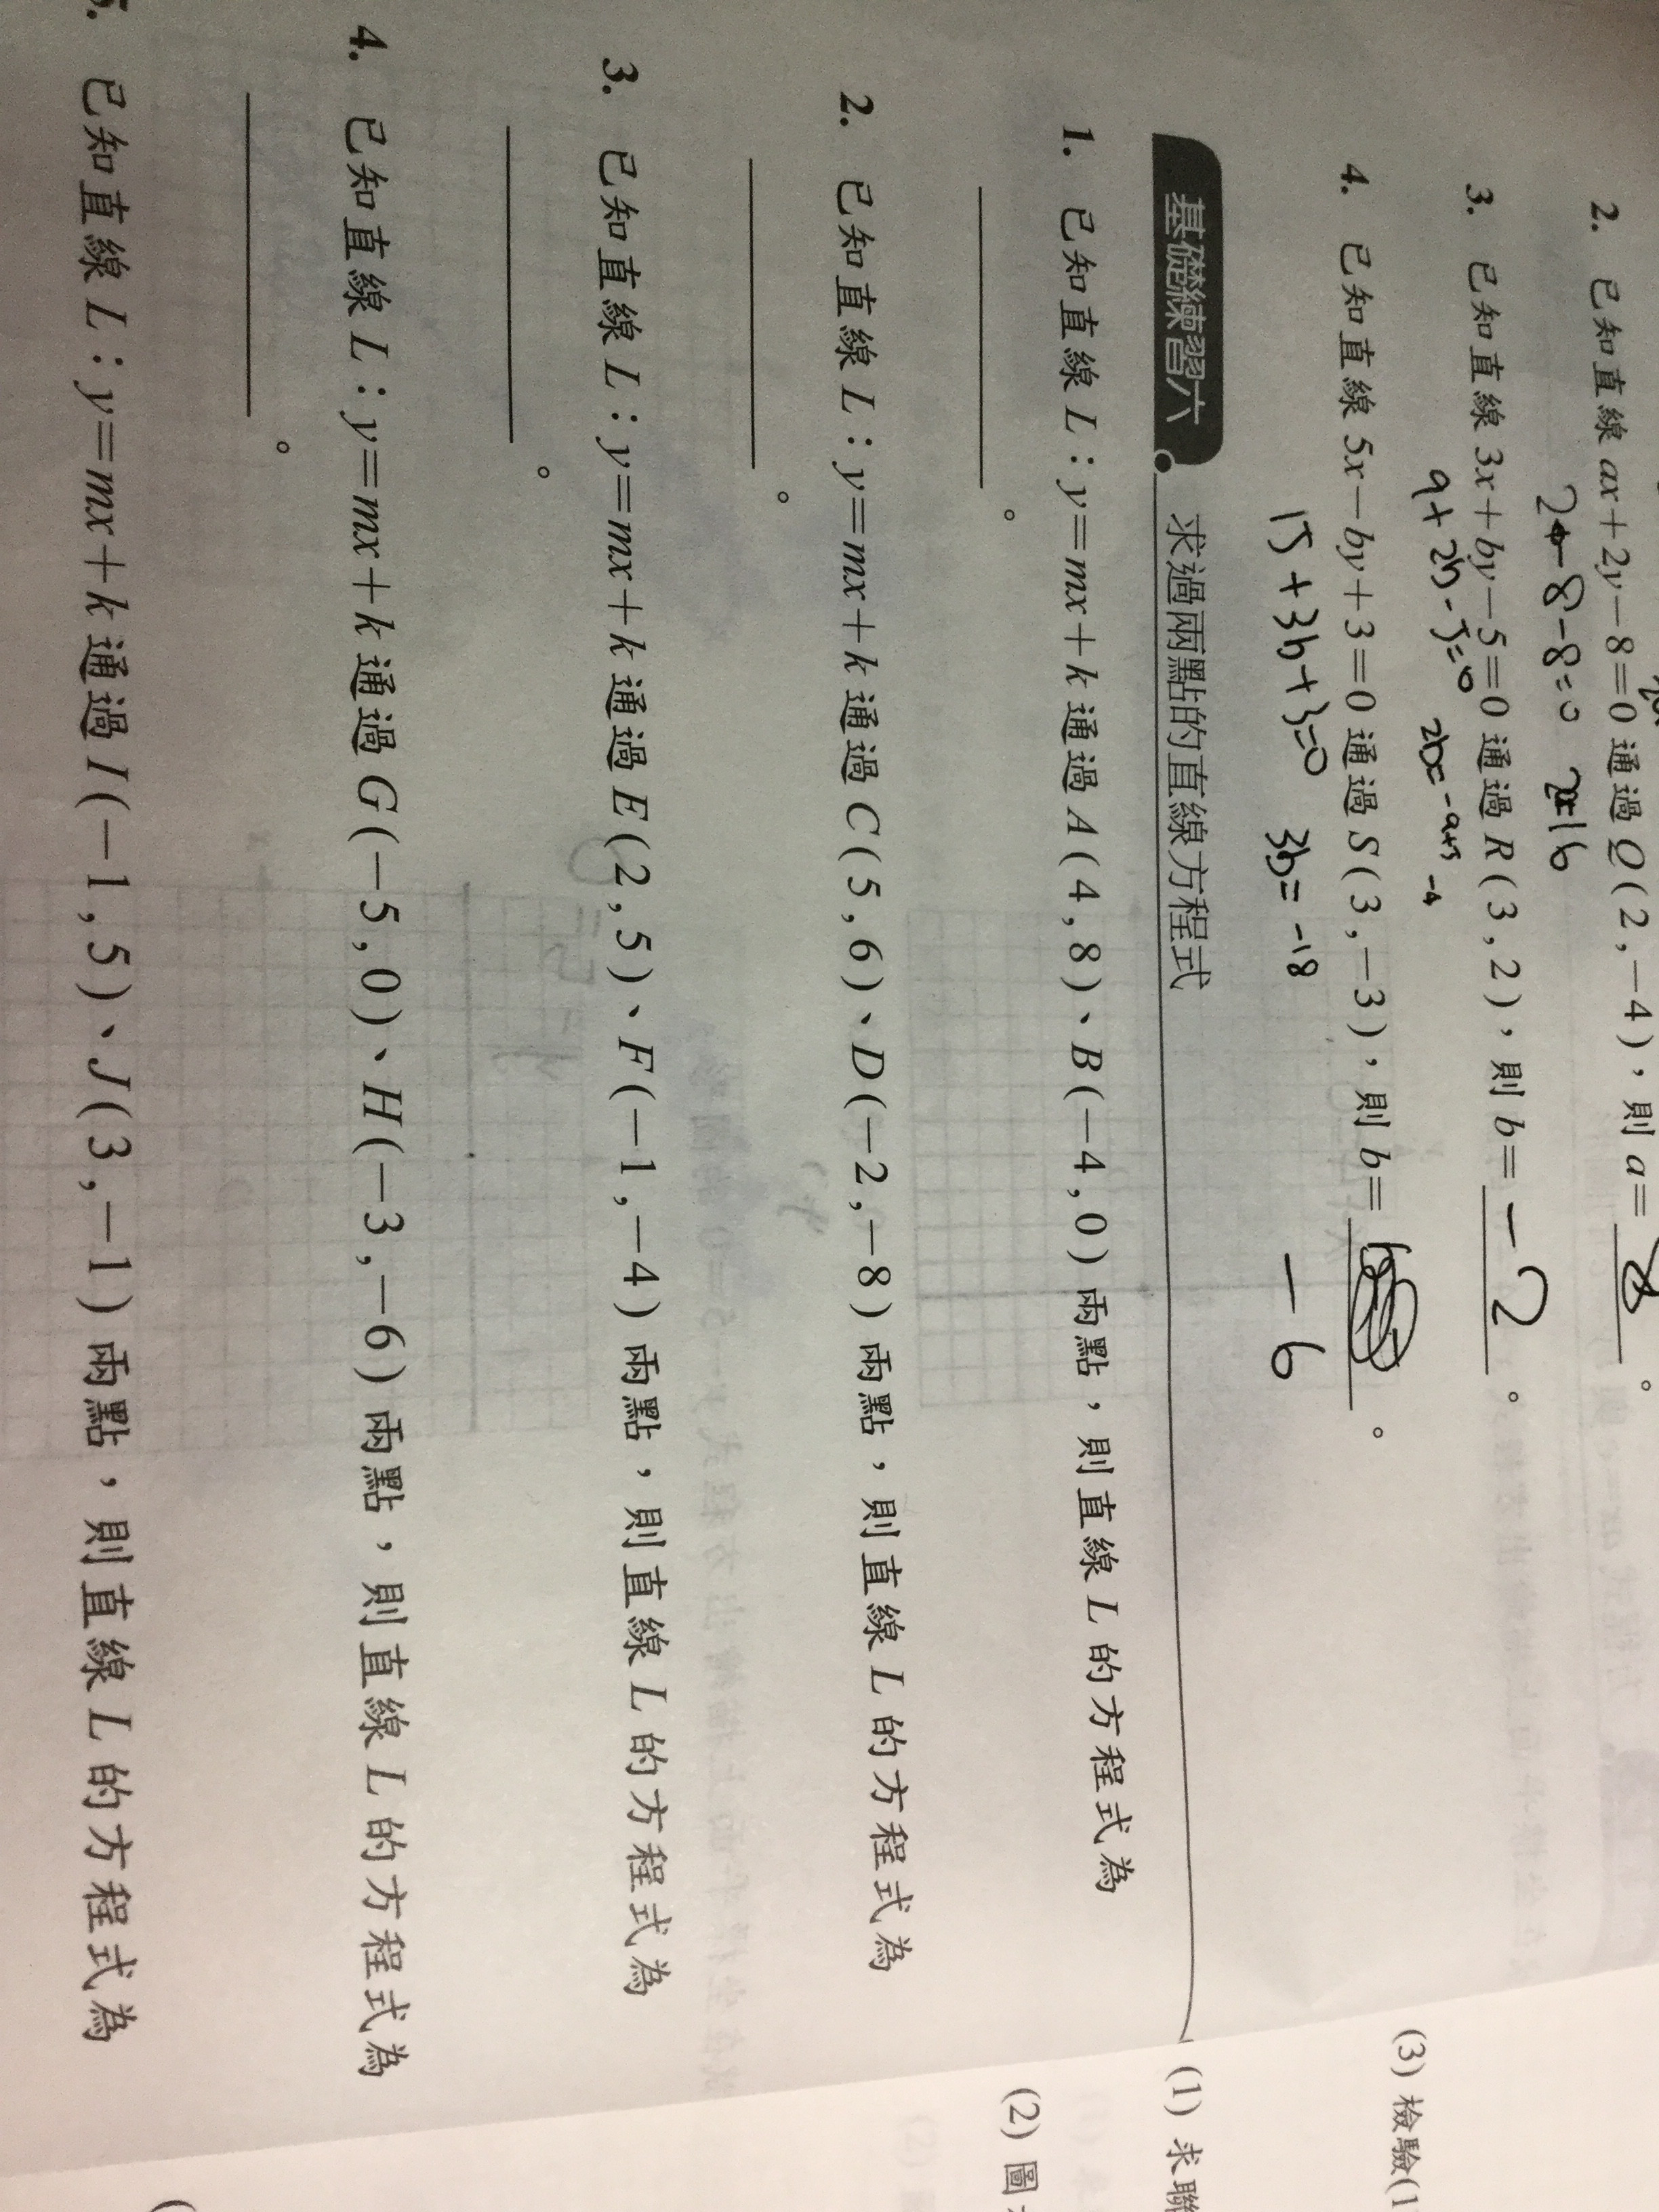 2. 已知直線 ax+2y-8=0 通過 Q(2,-4),則 a= 8 。
-8-8=0
3. 已知直線 3x+by-5=0 通過 R(3,2),則 b= -2 。
9+2b-5=0 2b=-9+5 -4
4. 已知直線 5x-by+3=0 通過 S(3,-3),則 b= 。
15+3b+3=0 3b=-18 -6
基礎練習六 求過兩點的直線方程式
1. 已知直線 L:y=mx+k 通過 A(4,8)、B(-4,0) 兩點,則直線 L 的方程式為
。
2. 已知直線 L:y=mx+k 通過 C(5,6)、D(-2,-8) 兩點,則直線 L 的方程式為
。
3. 已知直線 L:y=mx+k 通過 E(2,5)、F(-1,-4) 兩點,則直線 L 的方程式為
。
4. 已知直線 L:y=mx+k 通過 G(-5,0)、H(-3,-6) 兩點,則直線 L 的方程式為
。
5. 已知直線 L:y=mx+k 通過 I(-1,5)、J(3,-1) 兩點,則直線 L 的方程式為
(3) 檢驗(1
(1) 求聯
(2) 圖